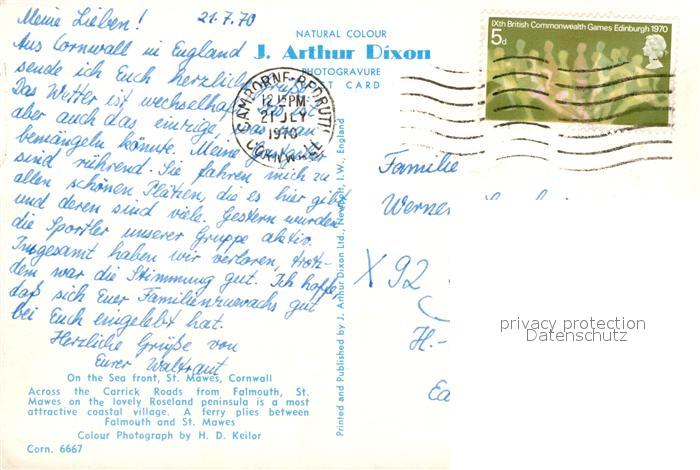 Meine Lieben! 21.7.70
Aus Cornwall in England
sende ich Euch herzliche Grüße.
Das Wetter ist wechselhaft, das ist
aber auch das einzige, was man
bemängeln könnte. Meine Gastgeber
sind rührend. Sie fahren mich zu
allen schönen Plätzen, die es hier gibt
und deren sind viele. Gestern wurden
die Sportler unserer Gruppe aktiv.
Insgesamt haben wir verloren, trotz-
dem war die Stimmung gut. Ich hoffe,
daß sich Euer Familienzuwachs gut
bei Euch eingelebt hat.
Herzliche Grüße von
Eurer Waltraut
On the Sea front, St. Mawes, Cornwall
Across the Carrick Roads from Falmouth, St.
Mawes on the lovely Roseland peninsula is a most
attractive coastal village. A ferry plies between
Falmouth and St. Mawes
Colour Photograph by H. D. Keilor
Corn. 6667
NATURAL COLOUR
J. Arthur Dixon
PHOTOGRAVURE
CARD
Printed and Published by J. Arthur Dixon Ltd., Newport, I.W., England
CAMBORNE-REDRUTH
12 15 PM
21 JLY
1970
CORNWALL
IXth British Commonwealth Games Edinburgh 1970
5d
Familie
Werner
X 92
H.-
privacy protection
Datenschutz